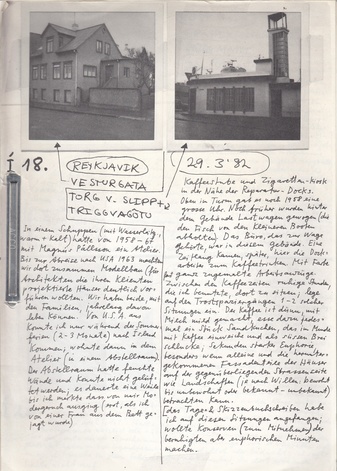 Í 18.
REYKJAVIK
VESTURGATA
TORG V. SLIPP +
TRIGGVAGÖTU
In einem Schuppen (mit Wasserltg.
warm + kalt) hatte von 1958 - 67
wir Magnús Pálsson ein Atelier.
Bis zur Abreise nach USA 1963 machten
wir dort zusammen Modellbau (für
Architekten die ihren Klienten
projektierte Häuser deutlich vor-
führen wollten. Wir haben beide, mit
den Familien, jahrelang davon
leben können. Von U.S.A. aus
konnte ich nur während des Sommer-
ferien (2-3 Monate) nach Island
kommen; wohnte dann in dem
Atelier (in einem Abstellraum).
Der Abstellraum hatte feuchte
Wände und konnte nicht gelüf-
tet werden; es dauerte eine Weile
bis ich merkte dass von mir Mo-
dergeruch ausging (erst, als ich
von einer Frau aus dem Bett ge-
jagt wurde)
29. 3. '82
Kaffeestube und Zigaretten-kiosk
in der Nähe der Reparatur-Docks.
Oben im Turm gab es noch 1958 eine
grosse Uhr. Noch früher wurden hinter
dem Gebäude Lastwagen gewogen (die
den Fisch von den kleineren Booten
abholten). Das Büro, das zur Waage
gehörte, war in diesem Gebäude. Eine
Zeitlang kamen, später, hier die Dock-
arbeiter zum Kaffeetrinken. Mit Farbe
ganz zugemalte Arbeitsanzüge.
Zwischen den Kaffeezeiten ruhige Stunden,
die ich benutzte, dort zu sitzen; lege
auf den Trostspaziergängen 1-2 solcher
Sitzungen ein. Der Kaffee ist dünn, mit
Milch wird gemacht, esse darum jedes-
mal ein Stück Sandkuchen, das im Munde
mit Kaffee einweiche und als süssen Brei
schlucke. Sekunden starker Euphorie
besonders wenn alleine und die herunter-
gekommene Fassadenreihe der Häuser
auf der gegenüberliegenden Strassenseite
wie Landschaften (je nach Willen, bewohnt
bis unbewohnt oder bekannt - unbekannt)
betrachten kann.
[das Tage & Skizzenbuchschreiben habe
ich auf diesen Sitzungen angefangen;
wollte Konserven (zum Mitnehmen) der
beruhigten als euphorischen Minuten
machen.